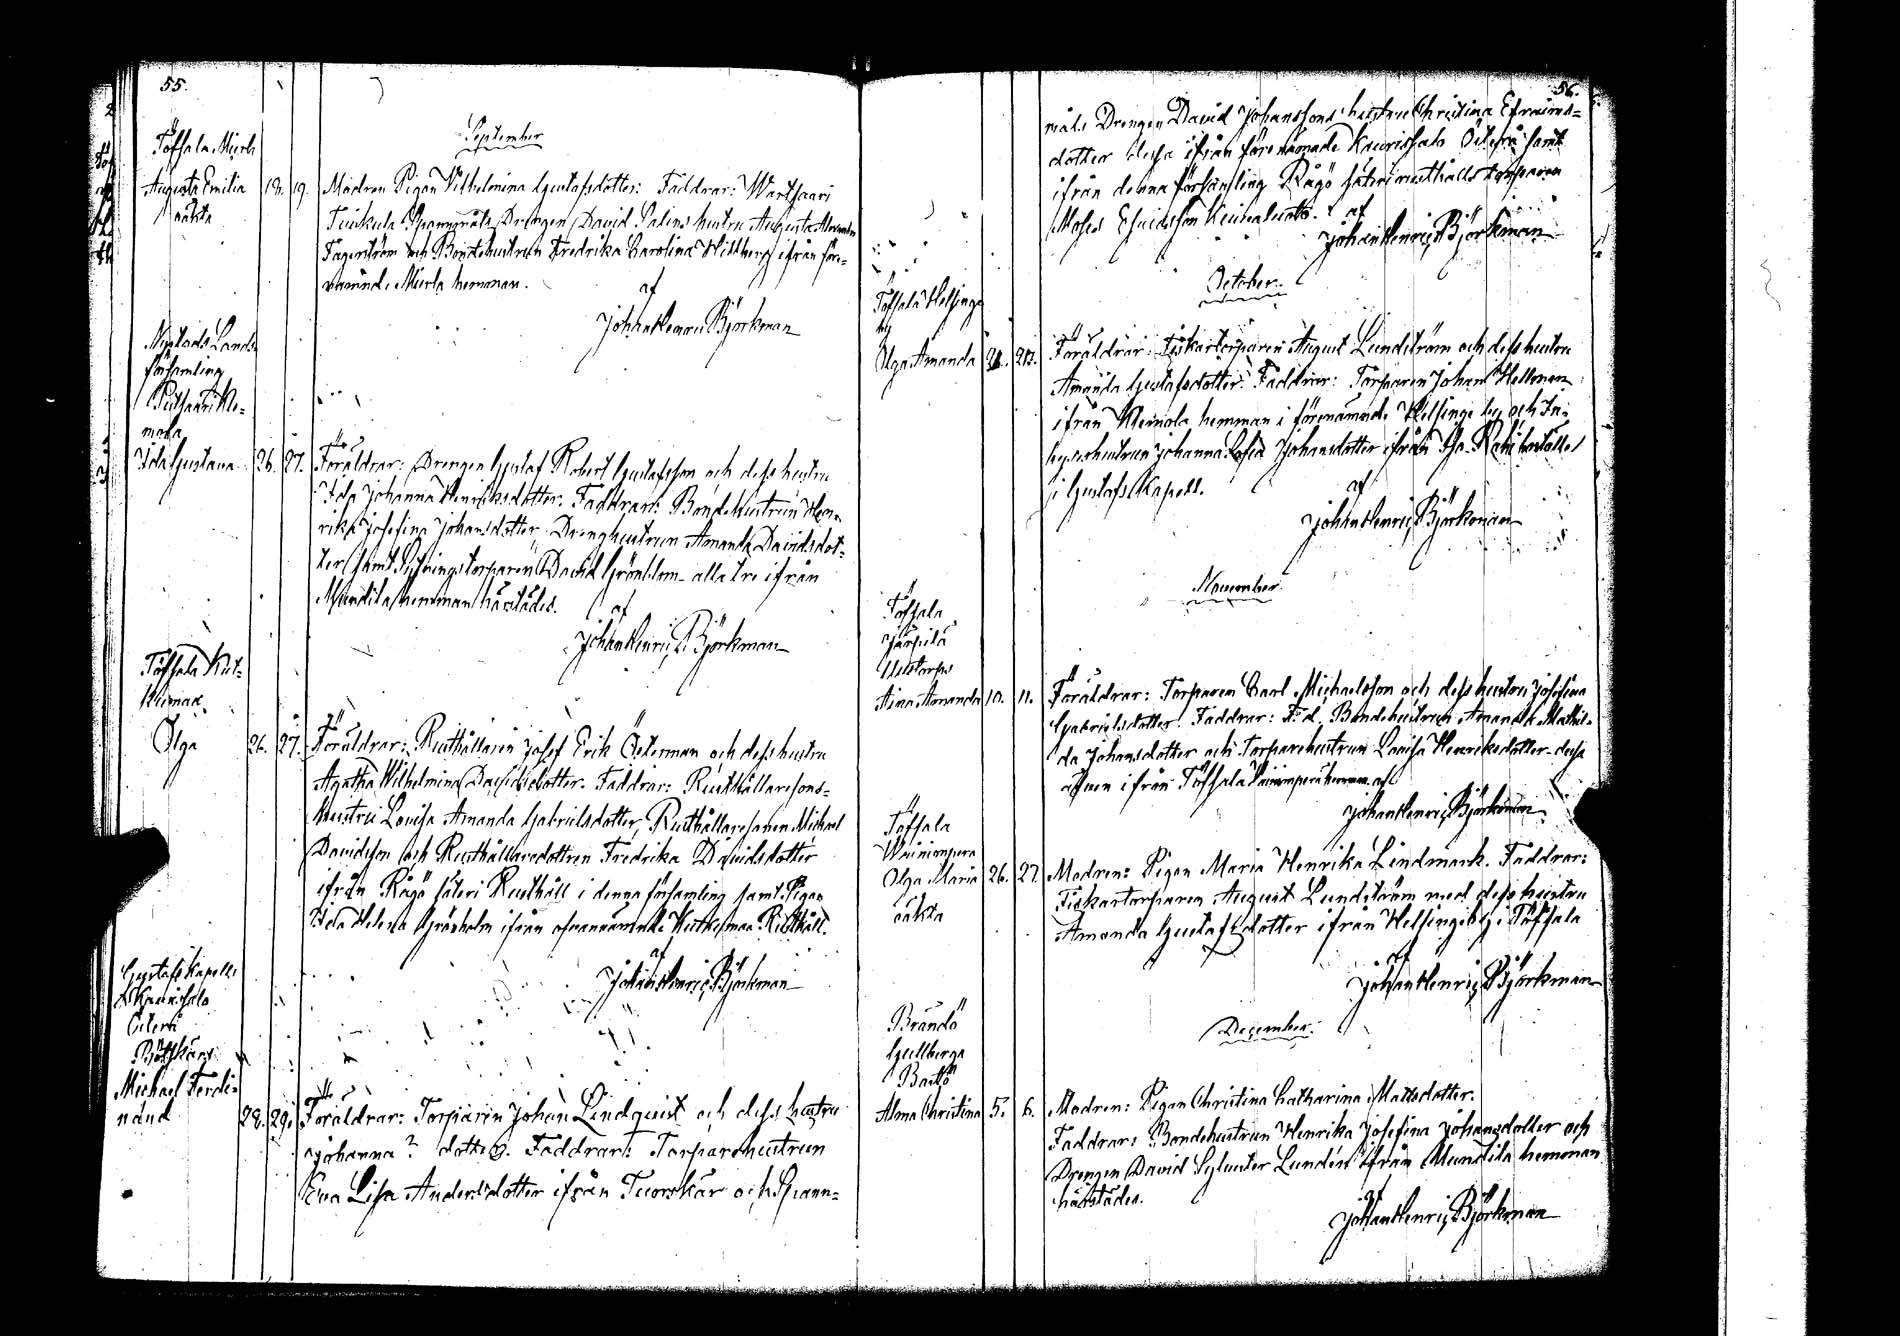 55.
September
Töfsala Mierla
Augusta Emilia 18. 19. Modren Pigan Vilhelmina Gustafsdotter: Faddrar: Wartsaari
oäkta
Drengen David Palins hustru Augusta
Fagerström och Bondehustrun Fredrika Carolina Hillberg ifrån före-
nämnde Mierla hemman. af
Johan Henric Björkman
Nystads Lands-
församling
mola
Ida Gustava 26. 27. Föräldrar: Drengen Gustaf Robert Gustafsson och dess hustru
Ida Johanna Henriksdotter. Faddrar: Bondehustrun Hen-
rika Josefina Johansdotter, Drenghustrun Amanda Davidsdot-
ter samt Sytningstorparen David Grönblom - alla tre ifrån
Mundila hemman härstädes. af
Johan Henric Björkman
Töfsala Kut-
kumaa
Olga 26. 27. Föräldrar: Rusthållaren Josef Erik Österman och dess hustru
Agatha Wilhelmina Davidsdotter. Faddrar: Rusthållaresons-
hustru Lovisa Amanda Gabrielsdotter, Rusthållaresonen Michael
Davidsson och Rusthållaredottren Fredrika Davidsdotter
ifrån Rågö säteri Rusthåll i denna församling samt Pigan
Ida Helena Granholm ifrån ofvannämnde Kutkumaa Rusthåll.
af
Johan Henric Björkman
Gustafs Kapell
Kaurissalo
Österö
Michael Ferdi-
nand 28. 29. Föräldrar: Torparen Johan Lindquist och dess hustru
Johanna ? dotter. Faddrar: Torparehustrun
Eva Lisa Andersdotter ifrån Tuorskär och Spann-
56.
måls Drengen David Johanssons hustru Christina Efraims-
dotter dessa ifrån förenämnde Kaurissalo Österö samt
ifrån denna församling Rågö säteri rusthålls torparen
Moses Esaiasson af
Johan Henric Björkman
October.
Töfsala Helsinge
by
Olga Amanda 20. Föräldrar: Fiskartorparen August Lundström och dess hustru
Amanda Gustafsdotter. Faddrar: Torparen Johan Hellman
ifrån Heinola hemman i förenämnde Helsinge by och In-
hyseshustrun Johanna Sofia Johansdotter ifrån
i Gustafs Kapell. af
Johan Henric Björkman
November.
Töfsala
Järpilä
Aina Amanda 10. 11. Föräldrar: Torparen Carl Michaelsson och dess hustru Josefina
Gabrielsdotter. Faddrar: F.d. Bondehustrun Amanda Mathil-
da Johansdotter och Torparehustrun Lovisa Henriksdotter - dessa
äfven ifrån Töfsala Wainionperä hemman. af
Johan Henric Björkman
Töfsala
Wainionpera
Olga Maria 26. 27. Modren: Pigan Maria Henrika Lindmark. Faddrar:
oäkta
Fiskartorparen August Lundström med dess hustru
Amanda Gustafsdotter ifrån Helsingeby i Töfsala
af
Johan Henric Björkman
December.
Brändö
Gullberga
Bartö
Alma Christina 5. 6. Modren: Pigan Christina Catharina Mattsdotter.
Faddrar: Bondehustrun Henrika Josefina Johansdotter och
Drengen David Sylvester Lundén ifrån Mundila hemman
härstädes. af
Johan Henric Björkman